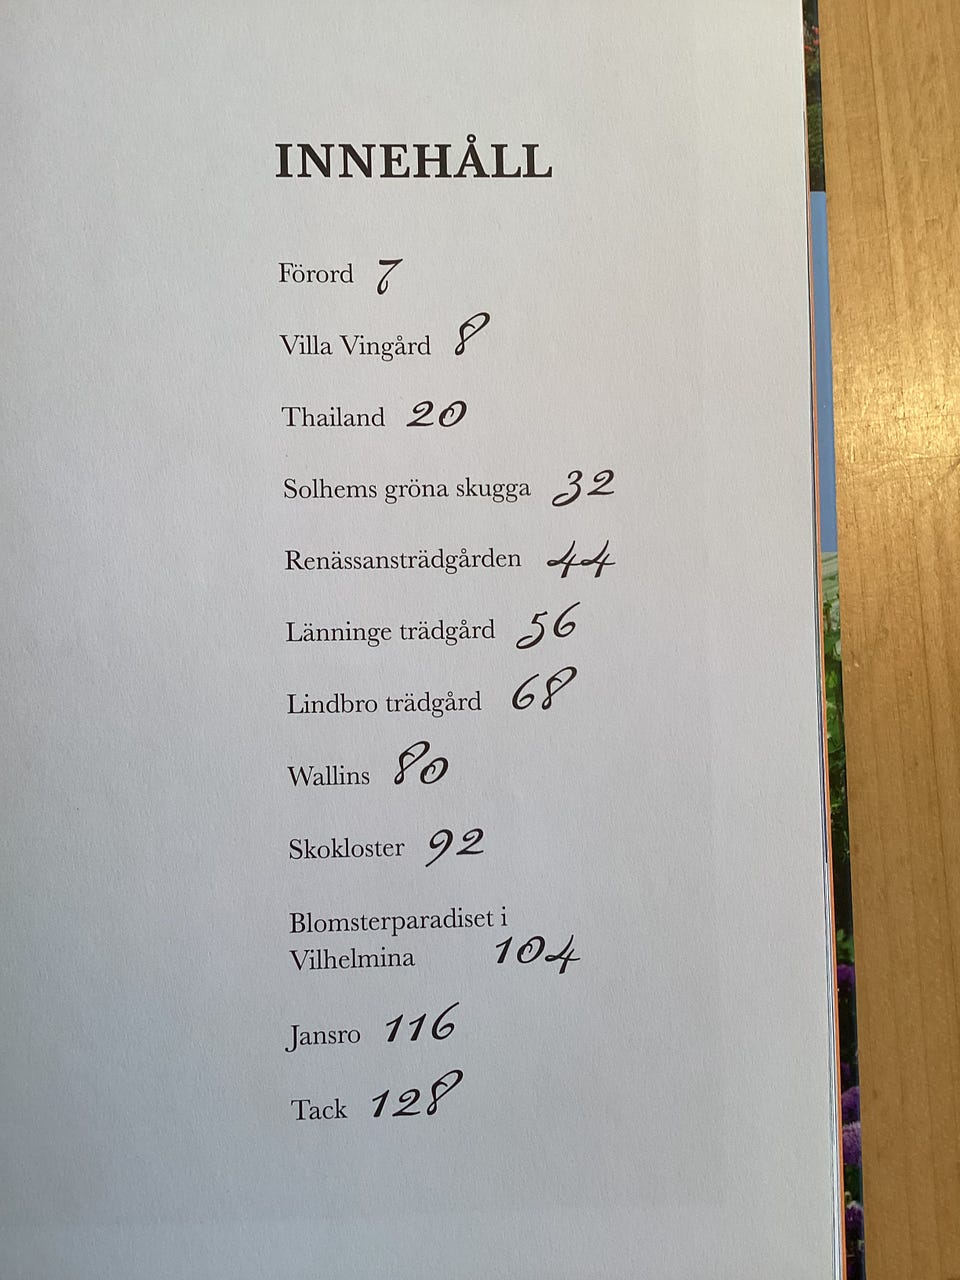 INNEHÅLL
Förord 7
Villa Vingård 8
Thailand 20
Solhems gröna skugga 32
Renässansträdgården 44
Länninge trädgård 56
Lindbro trädgård 68
Wallins 80
Skokloster 92
Blomsterparadiset i
Vilhelmina 104
Jansro 116
Tack 128